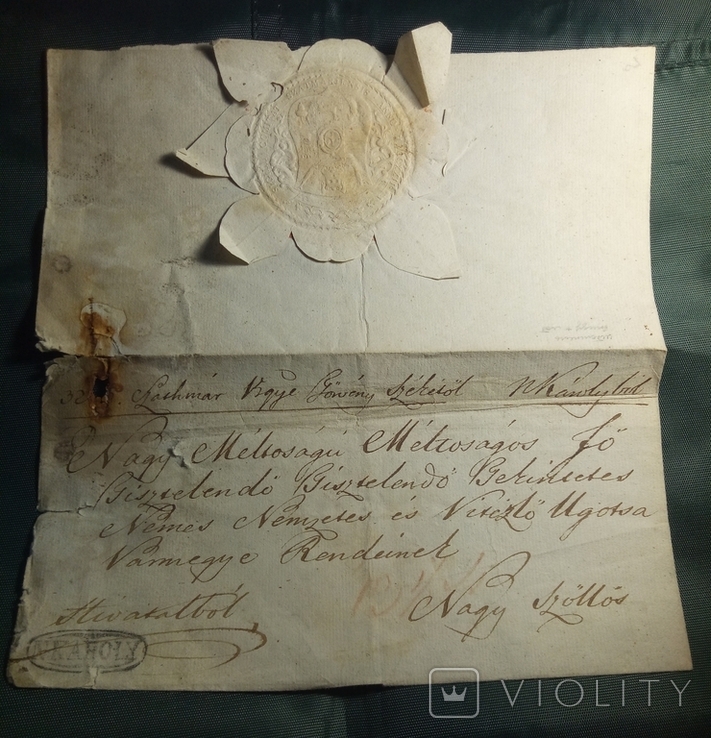 Szathmár Vgye Törvény Székétöl NKárolybul
Nagy Méltoságu Méltoságos Fö
Tisztelendö Tisztelendö Tekintetes
Nemes Nemzetes és Vitézlö Ugotsa
Vármegye Rendeinek
Hivatalból
Nagy Szöllös
N.KAROLY
VIOLITY